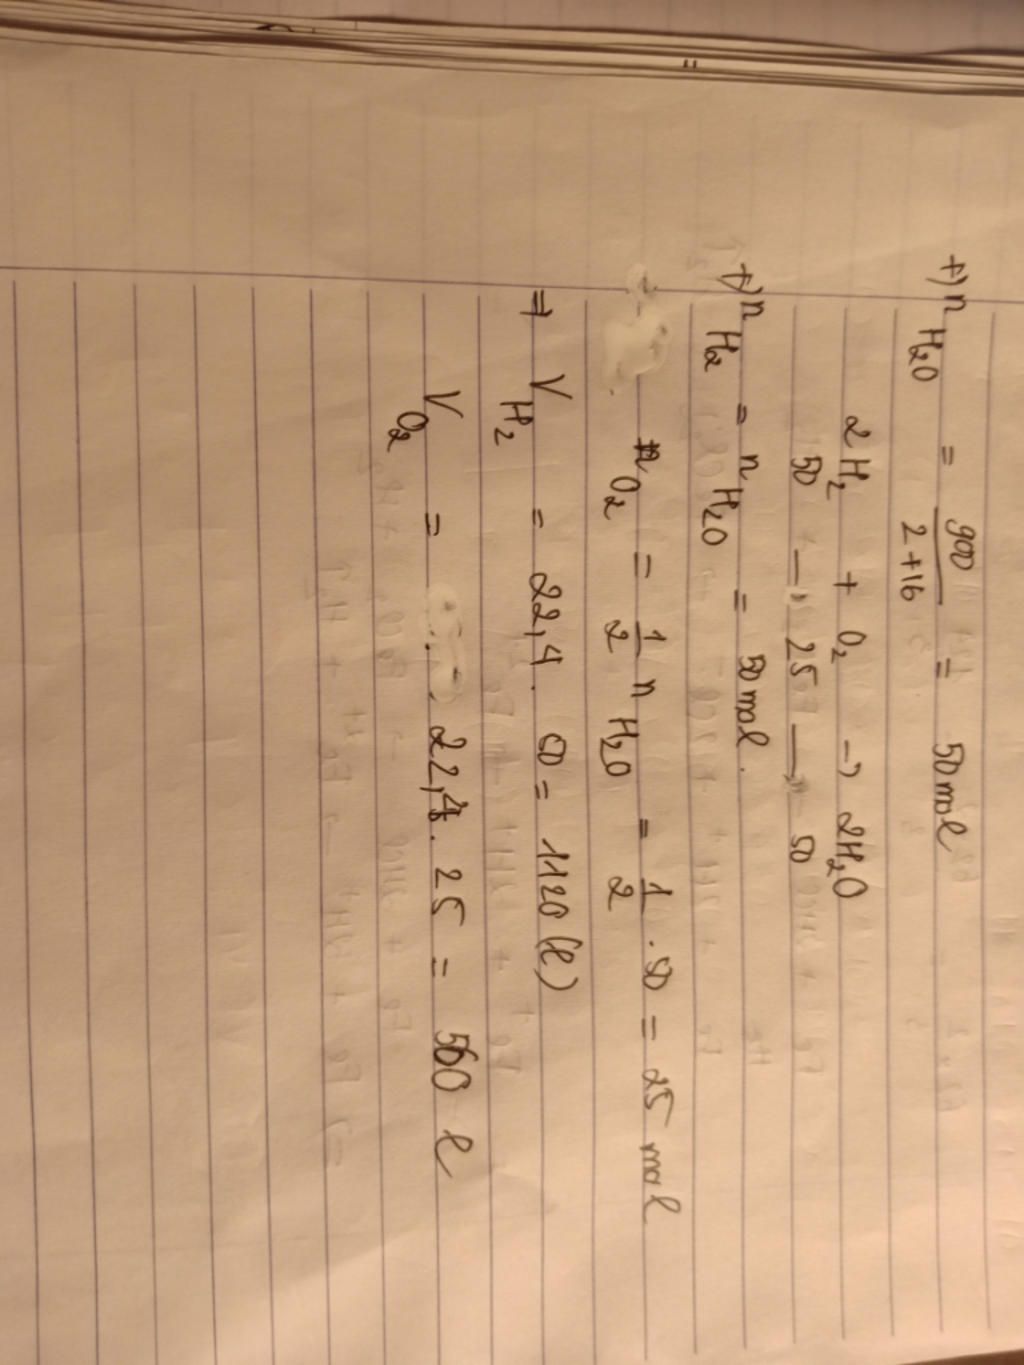 +) n H2O = 900/2+16 = 50 mol
2H2 + O2 → 2H2O
50 → 25 → 50
+) n H2 = n H2O = 50 mol.
n O2 = 1/2 n H2O = 1/2 . 50 = 25 mol
⇒ V H2 = 22,4 . 50 = 1120 (l)
V O2 = 22,4 . 25 = 560 l